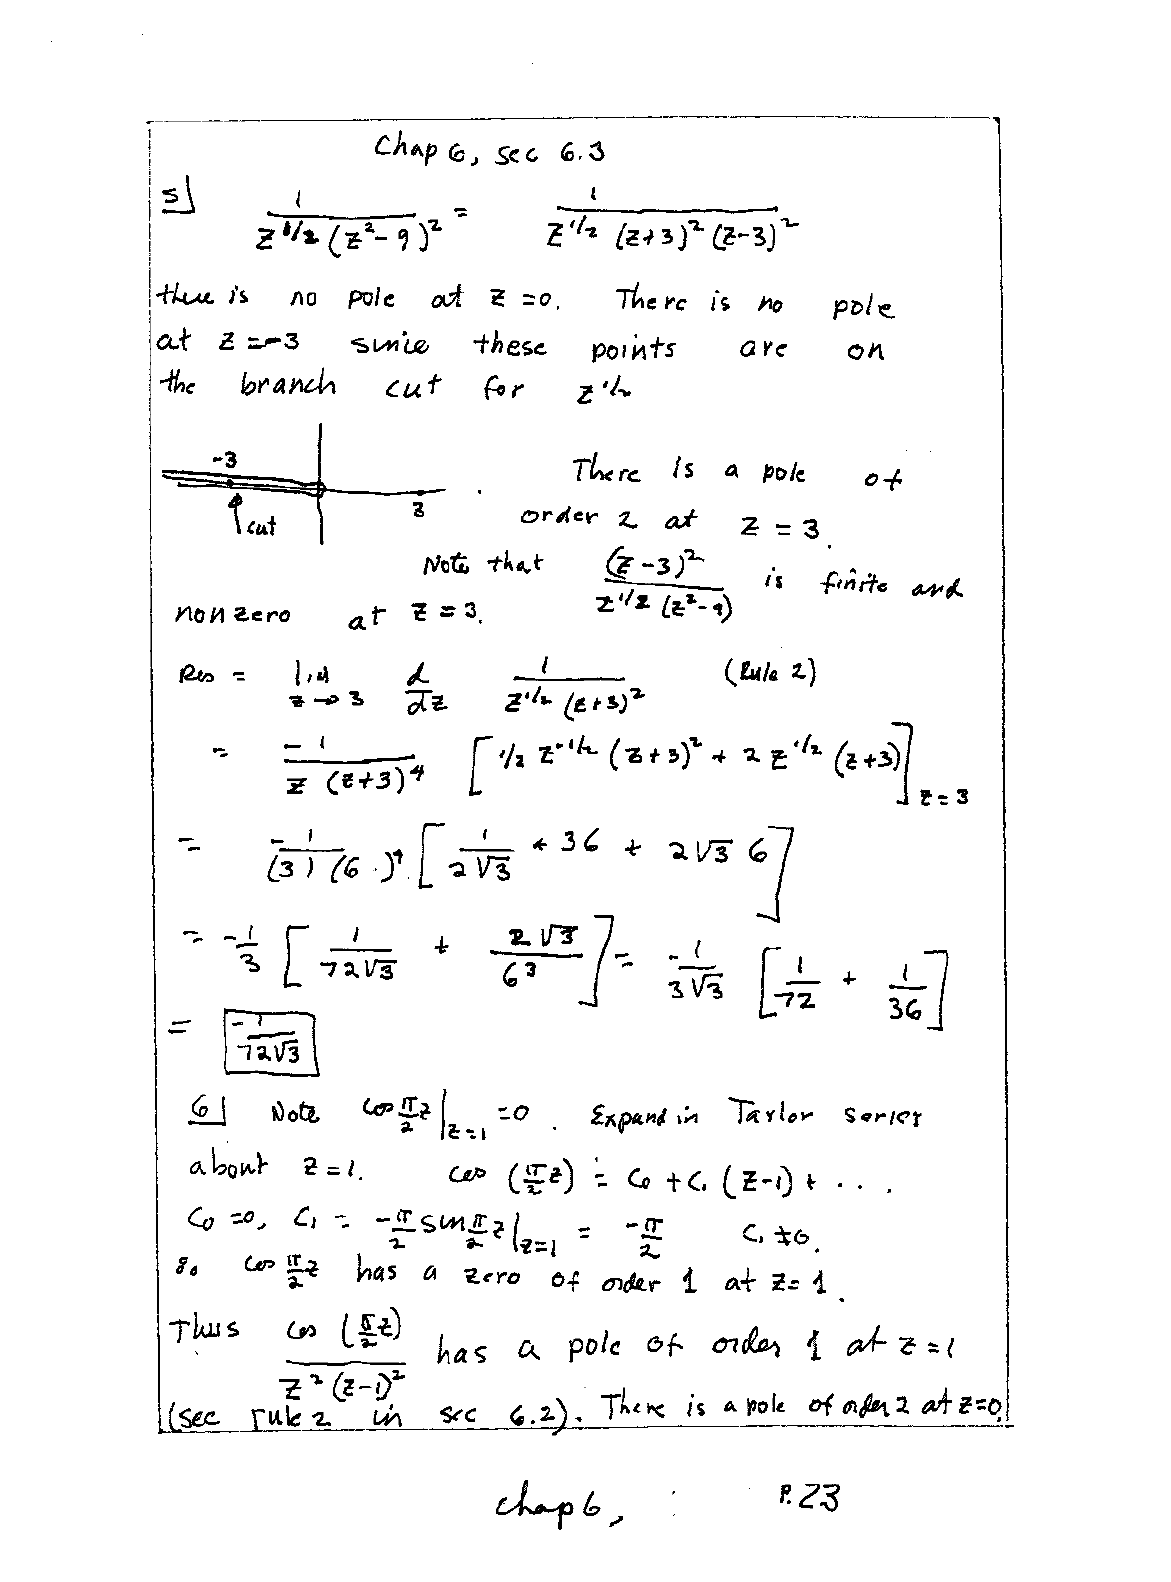 Chap 6, sec 6.3
5] 1/(z^{1/2} (z²-9)²) = 1/(z^{1/2} (z+3)² (z-3)²)
there is no pole at z=0. There is no pole
at z=-3 since these points are on
the branch cut for z^{1/2}
-3
3
cut
There is a pole of
order 2 at z = 3.
Note that (z-3)²/(z^{1/2} (z²-9)) is finite and
nonzero at z=3.
Res = lim z→3 d/dz 1/(z^{1/2} (z+3)²) (Rule 2)
= -1/(z (z+3)^4) [1/2 z^{-1/2} (z+3)² + 2 z^{1/2} (z+3)]_{z=3}
= -1/((3) (6)^4) [1/(2√3) * 36 + 2√3 6]
= -1/3 [1/(72√3) + 2√3/6³] = -1/(3√3) [1/72 + 1/36]
= -1/(72√3)
6] Note cos π/2 z |_{z=1} = 0. Expand in Taylor series
about z=1. cos (π/2 z) = c₀ + c₁ (z-1) + ....
c₀ = 0, c₁ = -π/2 sin π/2 z |_{z=1} = -π/2 c₁ ≠ 0.
So cos π/2 z has a zero of order 1 at z=1.
Thus cos (π/2 z)/(z² (z-1)²) has a pole of order 1 at z=1
(see rule 2 in sec 6.2). There is a pole of order 2 at z=0.
chap 6, P.23